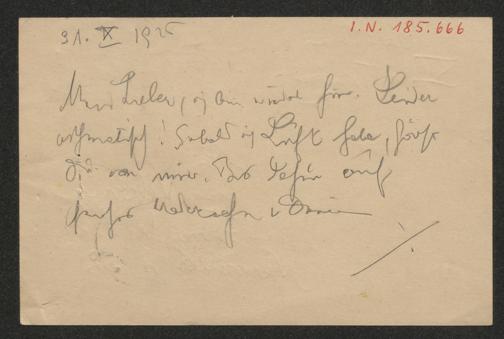 31. X 1925
I.N. 185.666
Mein Lieber, ich bin wieder hier. Leider
asthmatisch! Sobald ich Luft habe, hörst
Du von mir. Das Sehn auf